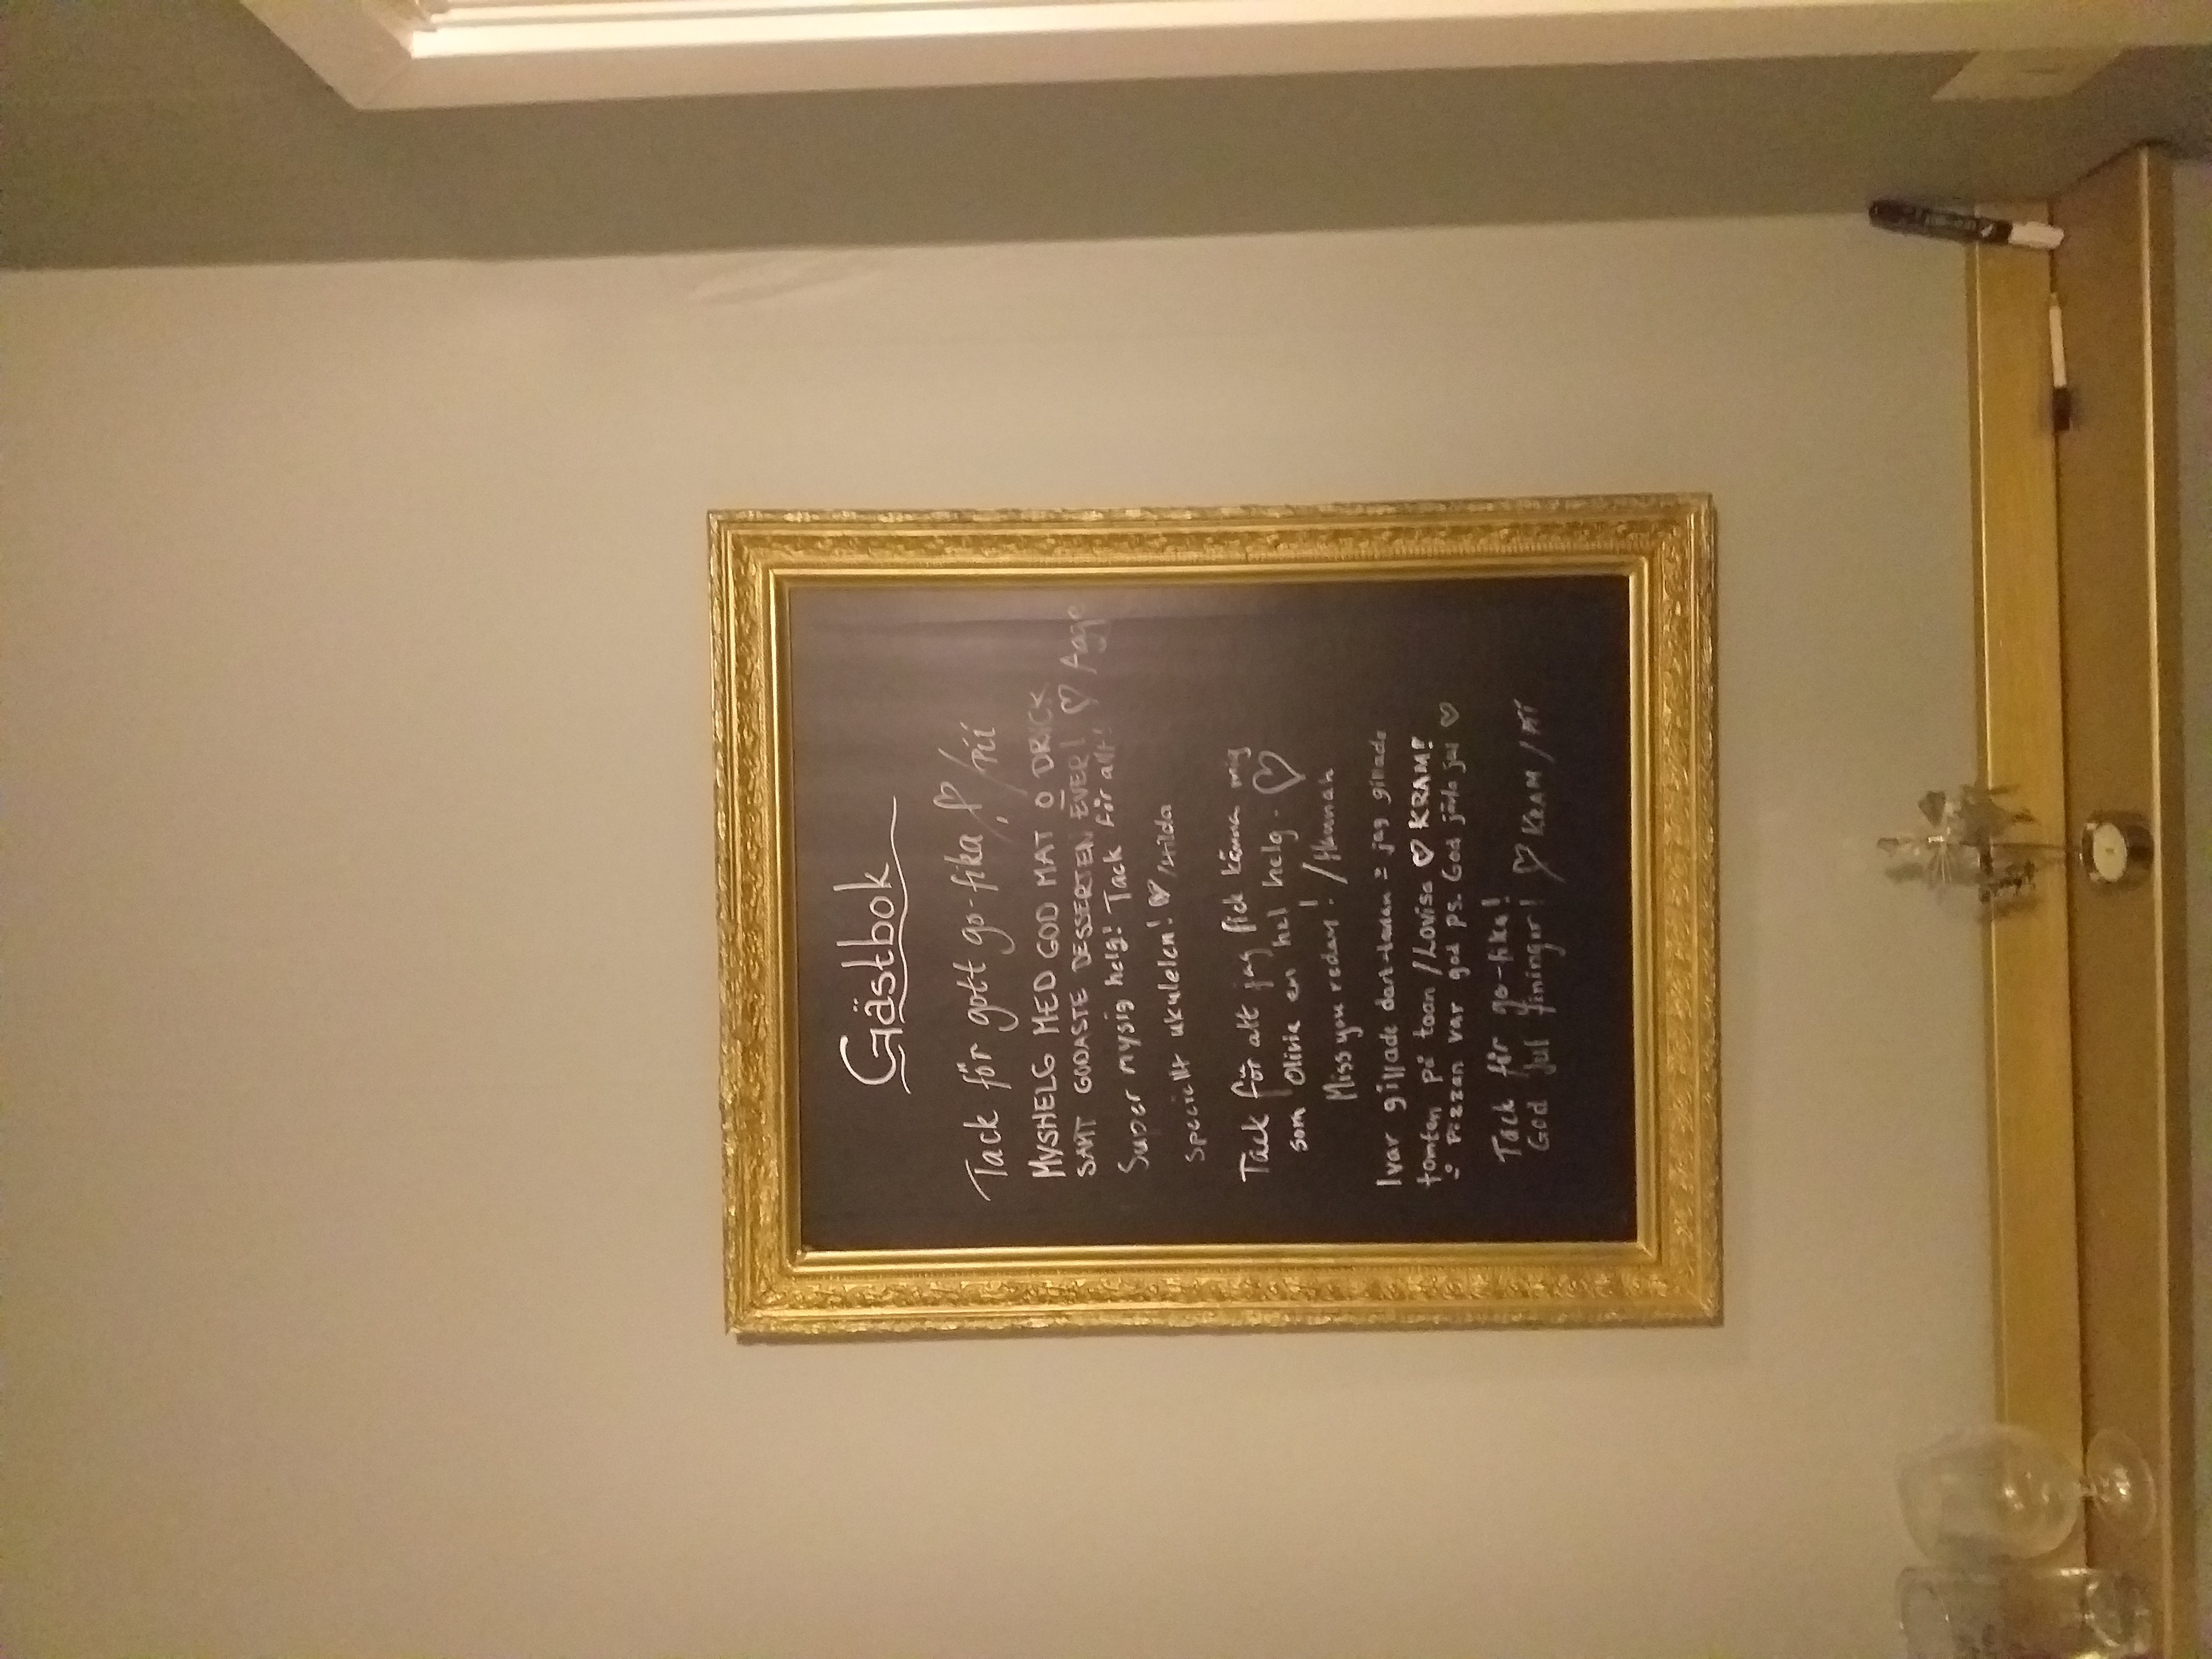 Gästbok
Tack för gott go-fika! /Pii
MYSHELG MED GOD MAT O DRICK
SAMT GODASTE DESSERTEN EVER! ♡ Agge
Super mysig helg! Tack för allt!
Speciellt ukulelen! ♡ /Hilda
Tack för att jag fick känna mig
som Olivia en hel helg. ♡
Miss you redan! /Hannah
Ivar gillade dart-tavlan o jag gillade
tomten på toan /Lovisa ♡ KRAM!
o Pizzan var god ps. God jävla jul ♡
Tack för go-fika!
God Jul finingar! ♡ KRAM / Pii